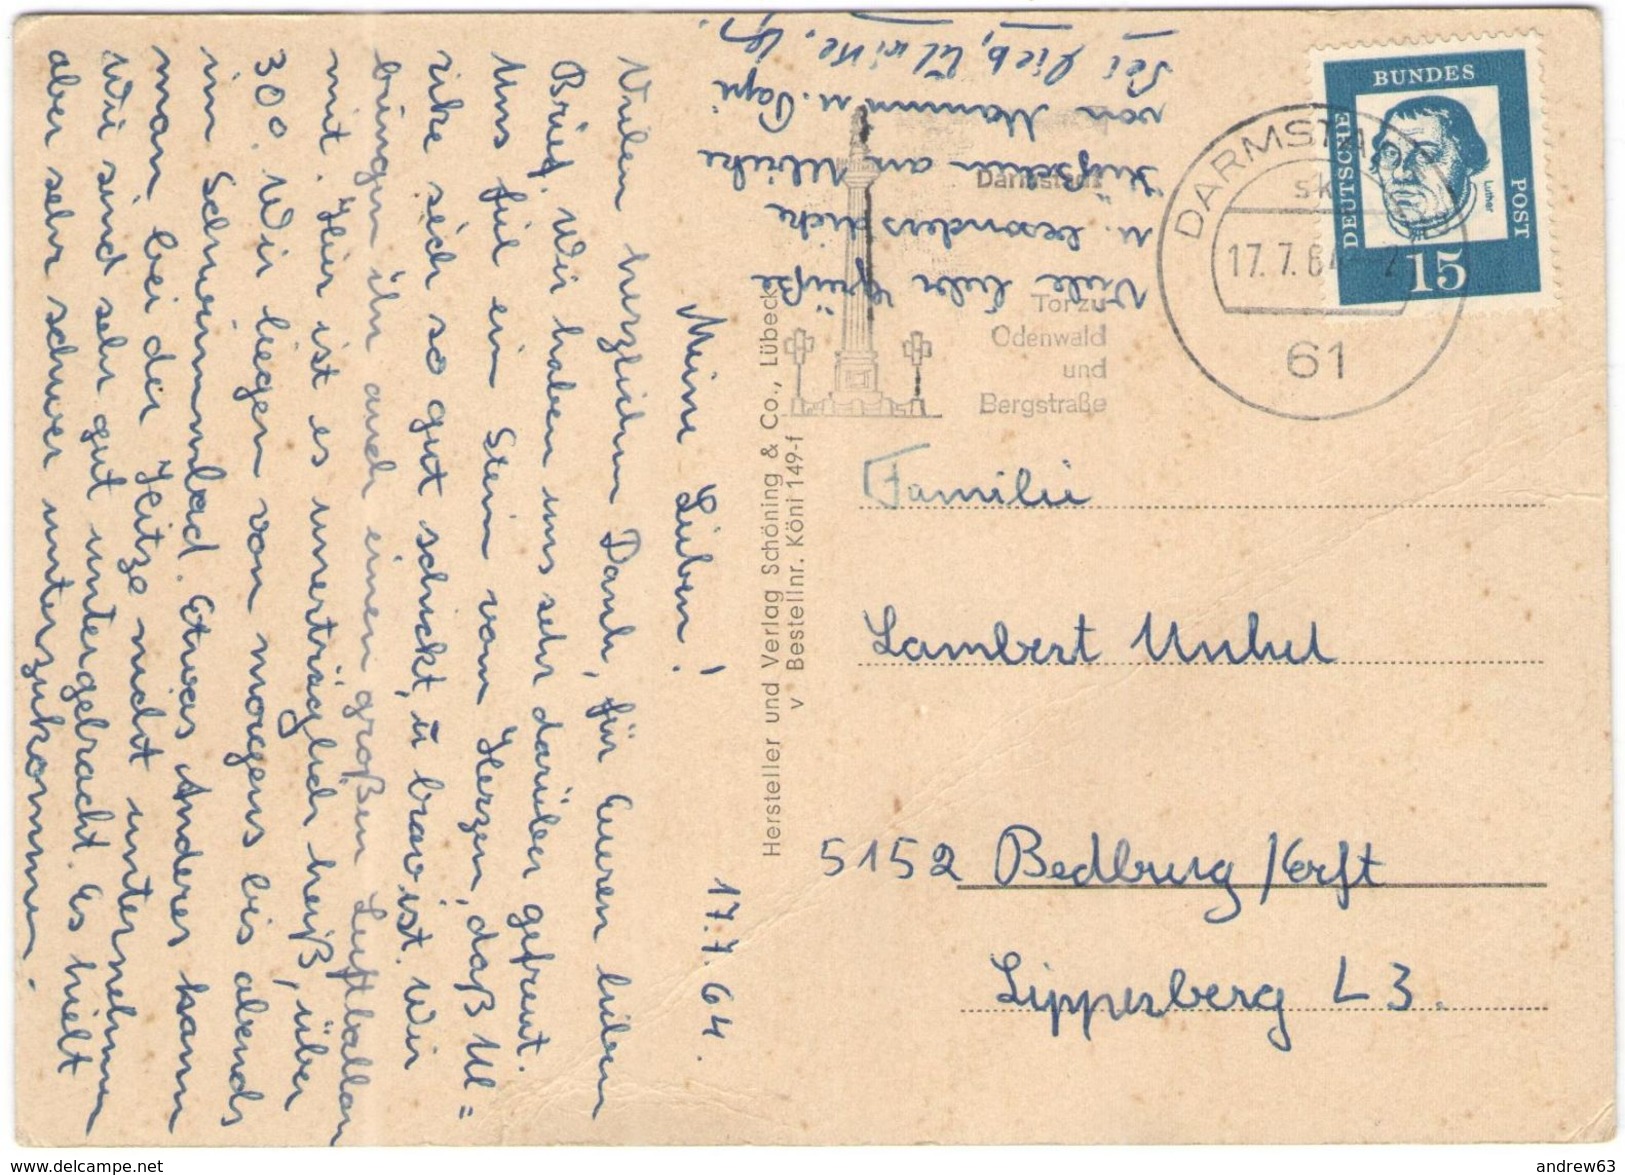 17.7.64.
Meine Lieben!
Vielen herzlichen Dank, für Eueren lieben
Brief. Wir haben uns sehr darüber gefreut.
Uns fiel ein Stein vom Herzen, daß Ul=
rike sich so gut schickt, u brav ist. Wir
bringen ihr auch einen großen Luftballon
mit. Hier ist es unerträglich heiß, über
30°. Wir liegen von morgens bis abends
im Schwimmbad. Etwas Anderes kann
man bei der Hitze nicht unternehmen
Wir sind sehr gut untergebracht. Es hielt
aber sehr schwer unterzukommen.
Viele liebe Grüße
u. besonders dicke
Küßchen an Ulrike
von Mamm u. Papi
Sei lieb, Ulrike.
Hersteller und Verlag Schöning & Co., Lübeck
v Bestellnr. Köni 149-f
Darmstadt
Tor zu
Odenwald
und
Bergstraße
DARMSTA
17.7.64
61
DEUTSCHE
BUNDES
POST
Luther
15
Familie
Lambert Unkel
5152 Bedburg/Erft
Lipperberg L 3.
www.delcampe.net
andrew63